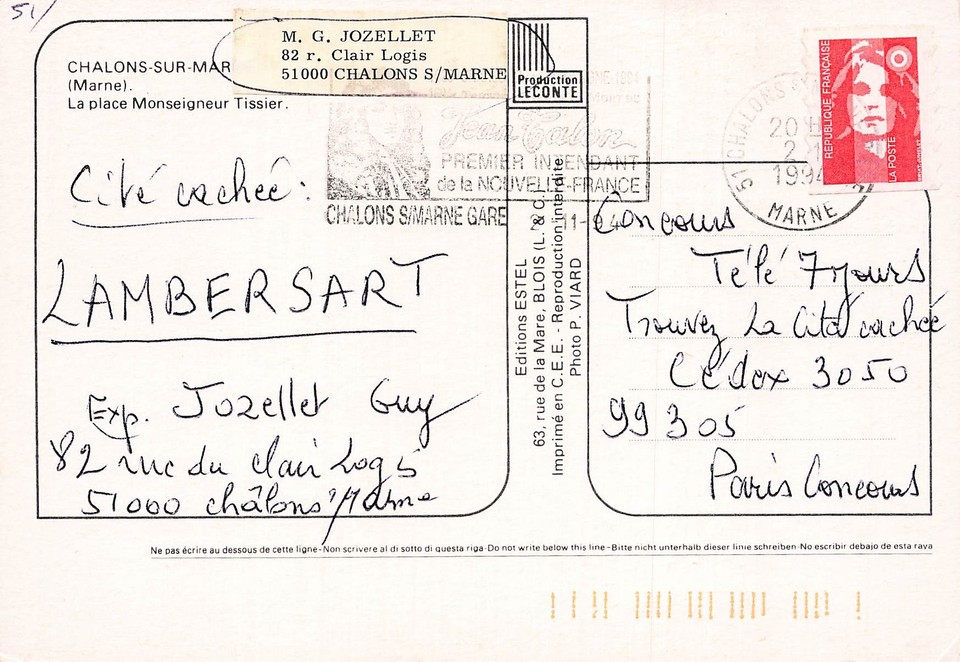 51/
M. G. JOZELLET
82 r. Clair Logis
51000 CHALONS S/MARNE
CHALONS-SUR-MAR
(Marne).
La place Monseigneur Tissier.
Production
LECONTE
Jean Talon
PREMIER INTENDANT
de la NOUVELLE-FRANCE
CHALONS S/MARNE GARE
51 CHALONS
20
2
1994
MARNE
REPUBLIQUE FRANÇAISE
LA POSTE
Cité cachée:
LAMBERSART
Exp. Jozellet Guy
82 rue du clair Logis
51000 châlons s/Marne
Editions ESTEL
63, rue de la Mare, BLOIS (L. & C.)
Imprimé en C.E.E. - Reproduction interdite
Photo P. VIARD
Concours
Télé 7 jours
Trouvez La Cité cachée
Cédex 3050
99305
Paris Concours
Ne pas écrire au dessous de cette ligne-Non scrivere al di sotto di questa riga-Do not write below this line-Bitte nicht unterhalb dieser linie schreiben-No escribir debajo de esta raya